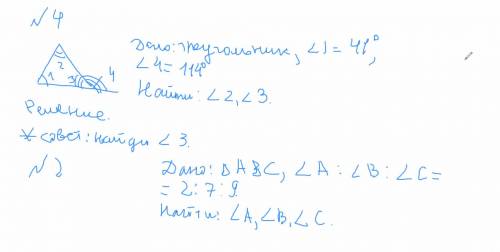 №4
Дано: треугольник, ∠1 = 41°,
∠4 = 114°
Найти: ∠2, ∠3.
1 2 3 4
Решение.
* совет: найди ∠3.
№2
Дано: ΔABC, ∠A : ∠B : ∠C =
= 2 : 7 : 9.
Найти: ∠A, ∠B, ∠C.